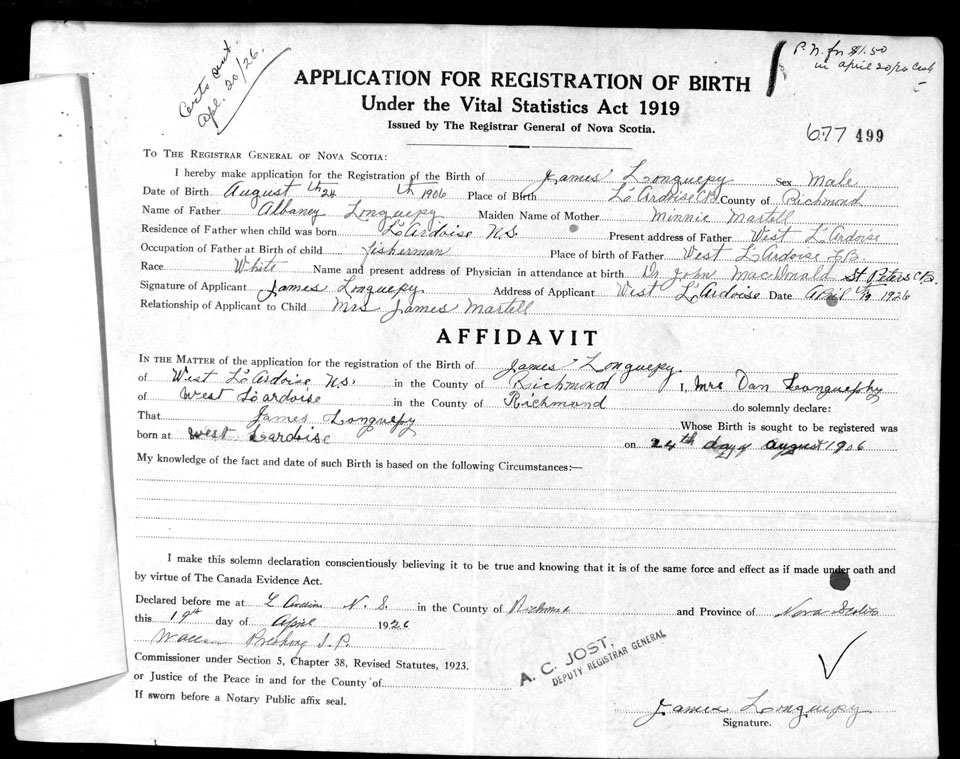 Certs sent.
Apl. 20/26.
P.N. for $1.50
in april 20/26
APPLICATION FOR REGISTRATION OF BIRTH
Under the Vital Statistics Act 1919
Issued by The Registrar General of Nova Scotia.
677 499
TO THE REGISTRAR GENERAL OF NOVA SCOTIA:
I hereby make application for the Registration of the Birth of James Longuepy Sex Male
Date of Birth August 24th 1906 Place of Birth L'Ardoise C.B. County of Richmond
Name of Father Albaney Longuepy Maiden Name of Mother Minnie Martell
Residence of Father when child was born L'Ardoise N.S. Present address of Father West L'Ardoise
Occupation of Father at Birth of child fisherman Place of birth of Father West L'Ardoise C.B.
Race White Name and present address of Physician in attendance at birth Dr John MacDonald St Peters C.B.
Signature of Applicant James Longuepy Address of Applicant West L'Ardoise Date April 19 1926
Relationship of Applicant to Child Mrs James Martell
AFFIDAVIT
IN THE MATTER of the application for the registration of the Birth of James Longuepy
of West L'Ardoise N.S. in the County of Richmond I, Mrs Dan Longuephy
of West Lardoise in the County of Richmond do solemnly declare:
That James Longuepy Whose Birth is sought to be registered was
born at West Lardoise on 24th day of august 1906
My knowledge of the fact and date of such Birth is based on the following Circumstances:—
I make this solemn declaration conscientiously believing it to be true and knowing that it is of the same force and effect as if made under oath and
by virtue of The Canada Evidence Act.
Declared before me at L'Ardoise N.S. in the County of Richmond and Province of Nova Scotia
this 19th day of April 1926
J.P.
Commissioner under Section 5, Chapter 38, Revised Statutes, 1923.
or Justice of the Peace in and for the County of
If sworn before a Notary Public affix seal.
A. C. JOST,
DEPUTY REGISTRAR GENERAL
James Longuepy
Signature.